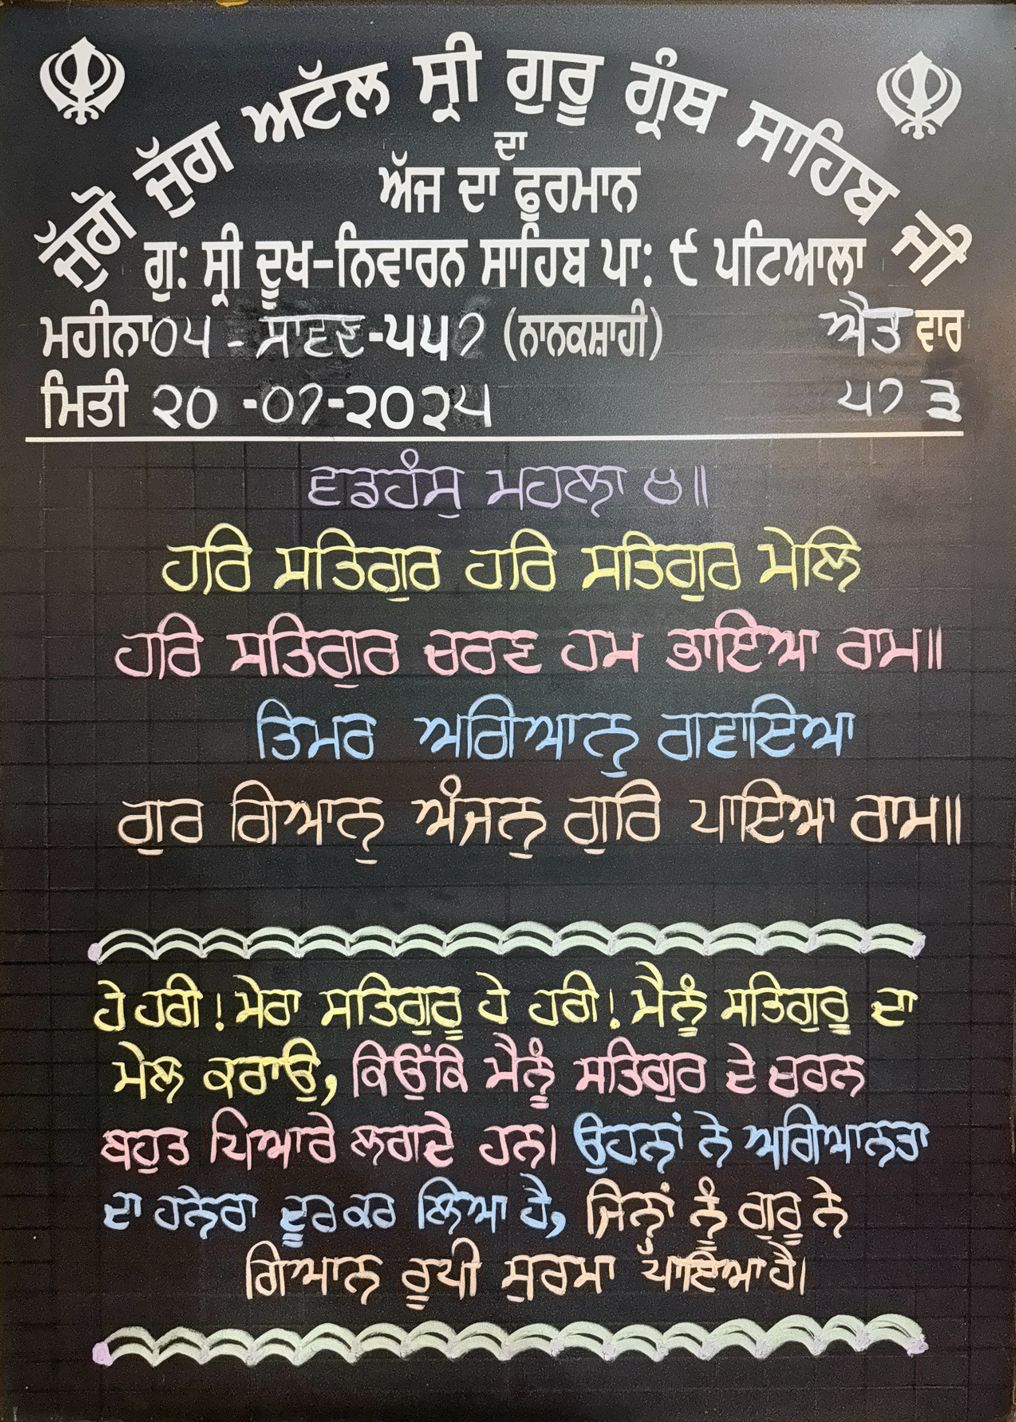 ਜੁੱਗੋ ਜੁੱਗ ਅਟੱਲ ਸ੍ਰੀ ਗੁਰੂ ਗ੍ਰੰਥ ਸਾਹਿਬ ਜੀ
ਦਾ
ਅੱਜ ਦਾ ਫੁਰਮਾਨ
ਗੁ: ਸ੍ਰੀ ਦੂਖ-ਨਿਵਾਰਨ ਸਾਹਿਬ ਪਾ: ੯ ਪਟਿਆਲਾ
ਮਹੀਨਾ ੦੫ - ਸਾਵਣ-੫੫੭ (ਨਾਨਕਸ਼ਾਹੀ) ਐਤ ਵਾਰ
ਮਿਤੀ ੨੦ -੦੭-੨੦੨੫ ੫੭੩
ਵਡਹੰਸੁ ਮਹਲਾ ੪॥
ਹਰਿ ਸਤਿਗੁਰ ਹਰਿ ਸਤਿਗੁਰ ਮੇਲਿ
ਹਰਿ ਸਤਿਗੁਰ ਚਰਣ ਹਮ ਭਾਇਆ ਰਾਮ॥
ਤਿਮਰ ਅਗਿਆਨੁ ਗਵਾਇਆ
ਗੁਰ ਗਿਆਨੁ ਅੰਜਨੁ ਗੁਰਿ ਪਾਇਆ ਰਾਮ॥
ਹੇ ਹਰੀ! ਮੇਰਾ ਸਤਿਗੁਰੂ ਹੇ ਹਰੀ! ਮੈਨੂੰ ਸਤਿਗੁਰੂ ਦਾ
ਮੇਲ ਕਰਾਉ, ਕਿਉਂਕਿ ਮੈਨੂੰ ਸਤਿਗੁਰ ਦੇ ਚਰਨ
ਬਹੁਤ ਪਿਆਰੇ ਲਗਦੇ ਹਨ। ਉਹਨਾਂ ਨੇ ਅਗਿਆਨਤਾ
ਦਾ ਹਨੇਰਾ ਦੂਰ ਕਰ ਲਿਆ ਹੈ, ਜਿਨ੍ਹਾਂ ਨੂੰ ਗੁਰੂ ਨੇ
ਗਿਆਨ ਰੂਪੀ ਸੁਰਮਾ ਪਾਇਆ ਹੈ।